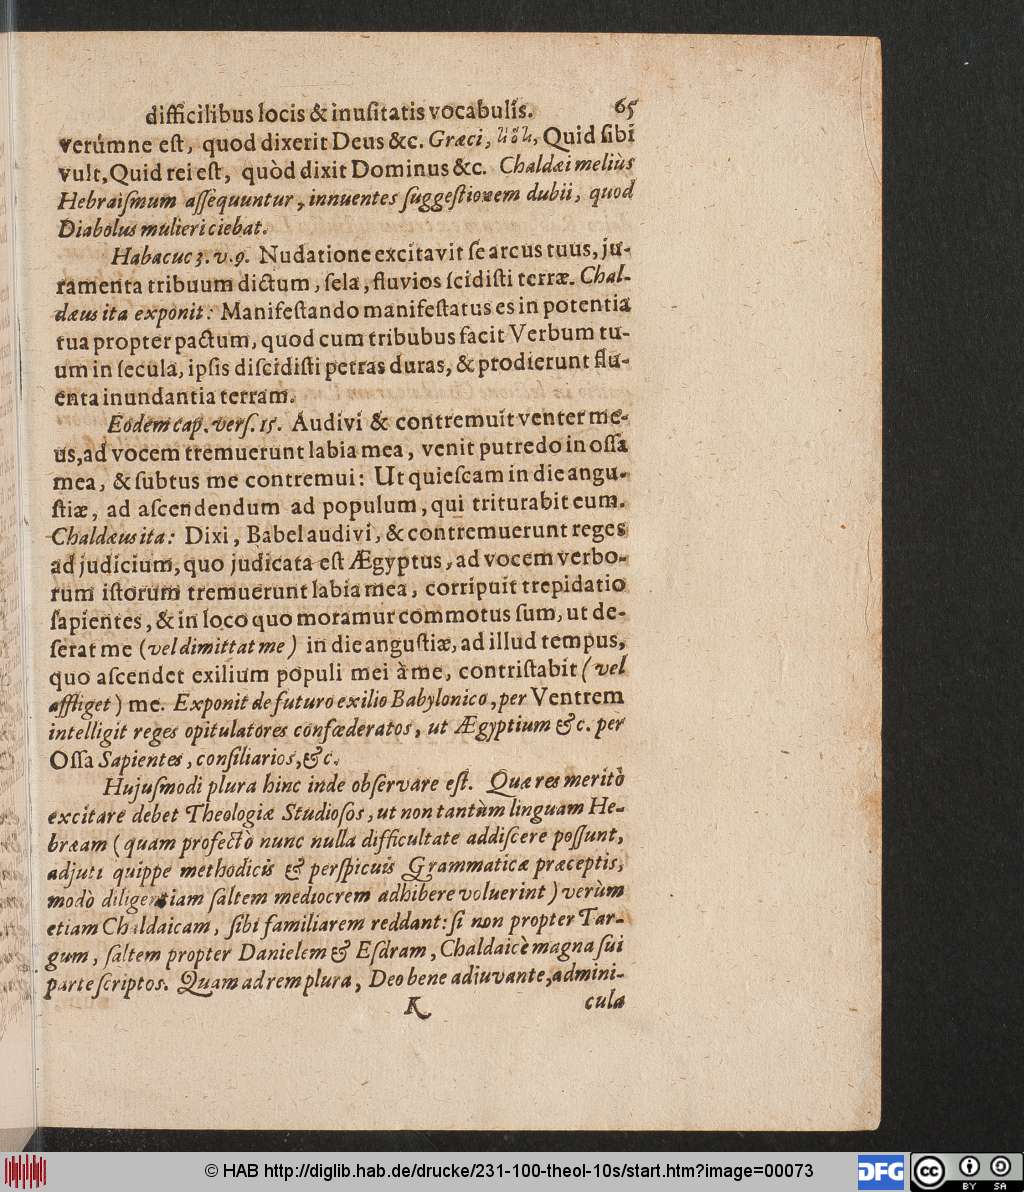 difficilibus locis & inuſitatis vocabulis. 65
verúmne eſt, quod dixerit Deus &c. Græci, Quid ſibi
vult, Quid rei eſt, quòd dixit Dominus &c. Chaldæi meliùs
Hebraiſmum aſſequuntur, innuentes ſuggeſtionem dubii, quod
Diabolus mulieri ciebat.
Habacuc 3. v. 9. Nudatione excitavit ſe arcus tuus, ju-
ramenta tribuum dictum, ſela, fluvios ſcidiſti terræ. Chal-
dæus ita exponit: Manifeſtando manifeſtatus es in potentia
tua propter pactum, quod cum tribubus facit Verbum tu-
um in ſecula, ipſis diſcidiſti petras duras, & prodierunt flu-
enta inundantia terram.
Eodem cap. verſ. 15. Audivi & contremuit venter me-
us, ad vocem tremuerunt labia mea, venit putredo in oſſa
mea, & ſubtus me contremui: Ut quieſcam in die angu-
ſtiæ, ad aſcendendum ad populum, qui triturabit eum.
Chaldæus ita: Dixi, Babel audivi, & contremuerunt reges
ad judicium, quo judicata eſt Ægyptus, ad vocem verbo-
rum iſtorum tremuerunt labia mea, corripuit trepidatio
ſapientes, & in loco quo moramur commotus ſum, ut de-
ſerat me (vel dimittat me) in die anguſtiæ, ad illud tempus,
quo aſcendet exilium populi mei à me, contriſtabit (vel
affliget) me. Exponit de futuro exilio Babylonico, per Ventrem
intelligit reges opitulatores confœderatos, ut Ægyptium &c. per
Oſſa Sapientes, conſiliarios, &c.
Hujuſmodi plura hinc inde obſervare eſt. Quæ res meritò
excitare debet Theologiæ Studioſos, ut non tantùm linguam He-
bræam (quam profectò nunc nulla difficultate addiſcere poſſunt,
adjuti quippe methodicis & perſpicuis Grammaticæ præceptis,
modò diligentiam ſaltem mediocrem adhibere voluerint) verùm
etiam Chaldaicam, ſibi familiarem reddant: ſi non propter Tar-
gum, ſaltem propter Danielem & Eſdram, Chaldaicè magna ſui
parte ſcriptos. Quam ad rem plura, Deo bene adiuvante, admini-
K cula
© HAB http://diglib.hab.de/drucke/231-100-theol-10s/start.htm?image=00073
DFG
cc BY SA